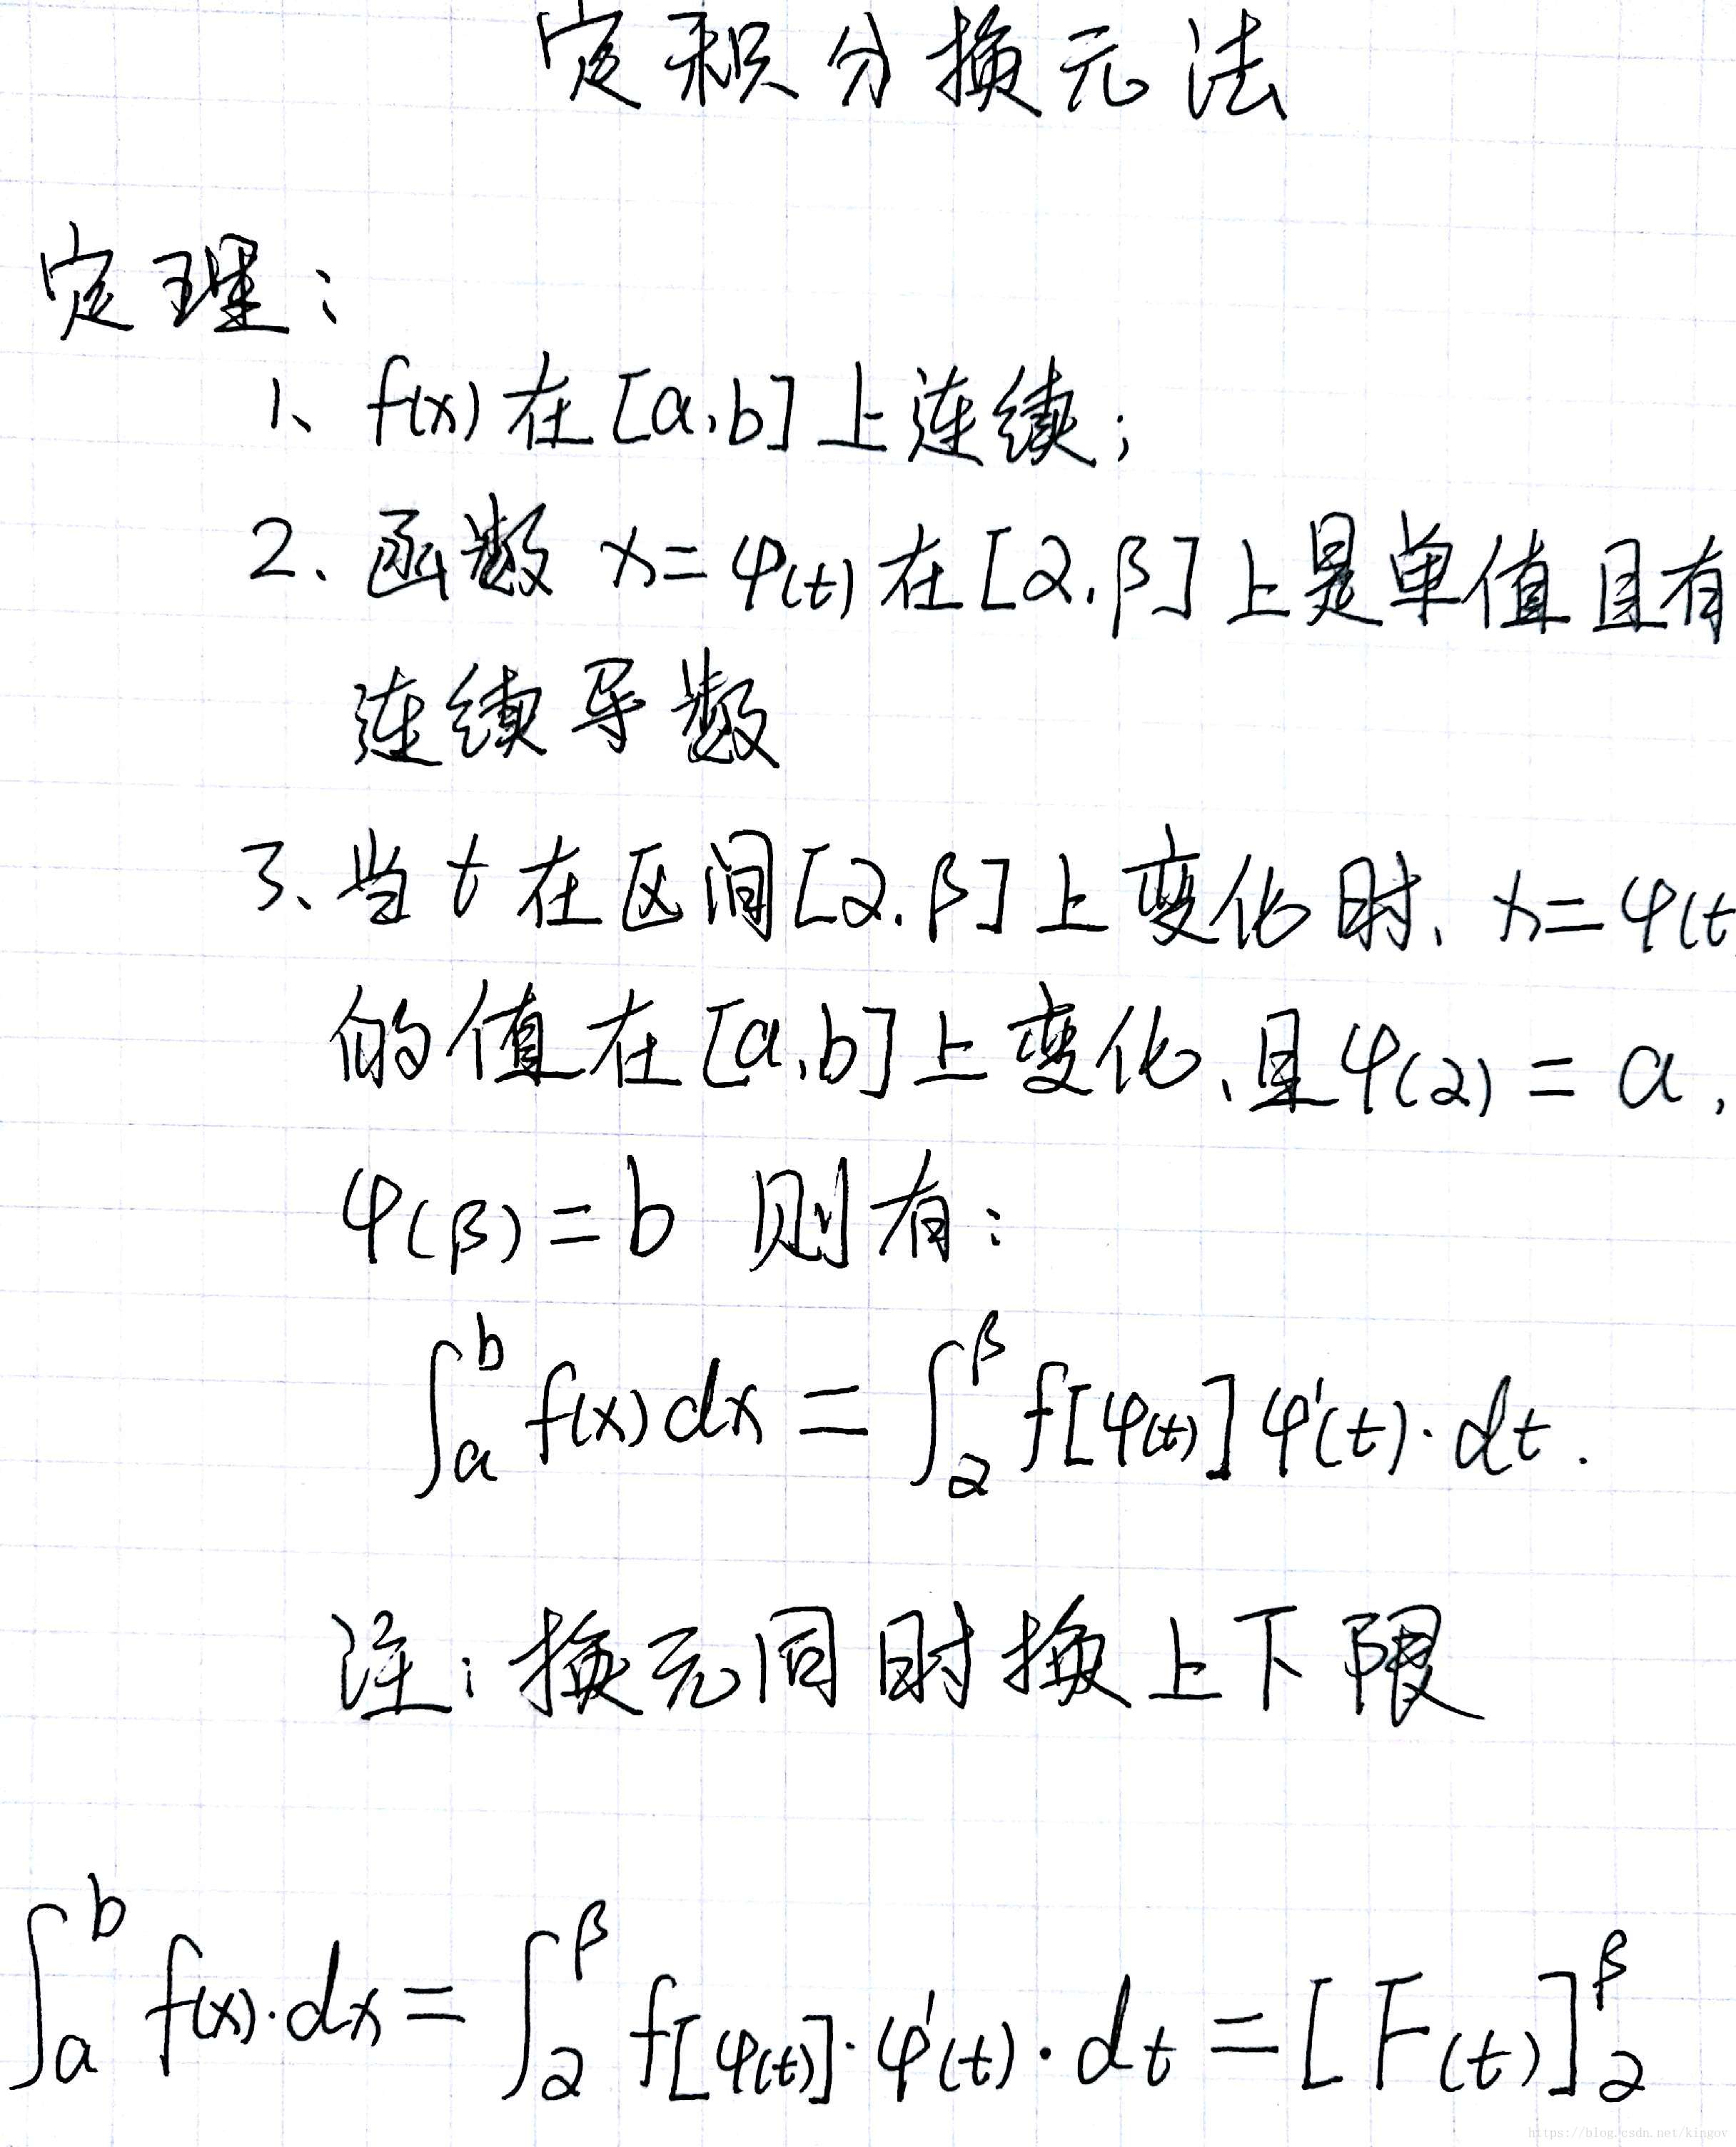 定积分换元法
定理：
1、f(x)在[a,b]上连续；
2、函数 x=φ(t)在[α,β]上是单值且有
连续导数
3、当t在区间[α,β]上变化时、x=φ(t
的值在[a,b]上变化、且φ(α)=a，
φ(β)=b 则有：
∫_a^b f(x)dx=∫_α^β f[φ(t)]φ'(t)·dt.
注：换元同时换上下限
∫_a^b f(x)·dx=∫_α^β f[φ(t)]·φ'(t)·dt=[F(t)]_α^β
https://blog.csdn.net/kingov